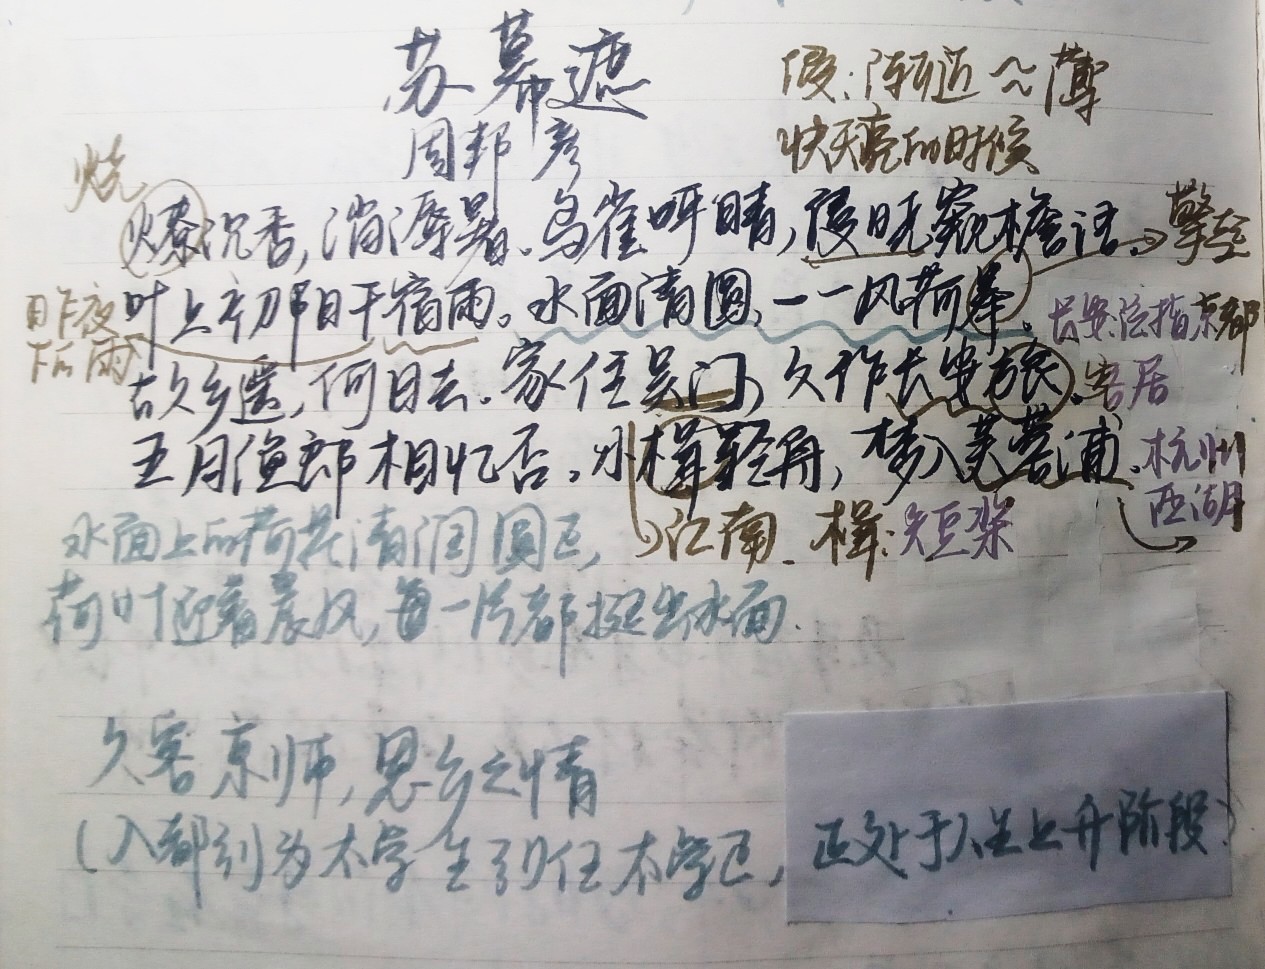 苏幕遮
周邦彦
侵：渐近～薄
快天亮的时候
烧
燎沉香，消溽暑。鸟雀呼晴，侵晓窥檐语。
擎径
叶上初阳干宿雨。水面清圆，一一风荷举。
昨夜
下的雨
长安：泛指京都
故乡遥，何日去。家住吴门，久作长安旅。
客居
五月渔郎相忆否。小楫轻舟，梦入芙蓉浦。
杭州
西湖
江南. 楫：短桨
水面上的荷花清润圆正，
荷叶迎着晨风，每一片都挺出水面.
久客京师，思乡之情
（入都到为太学生到任太学正，正处于人生上升阶段）